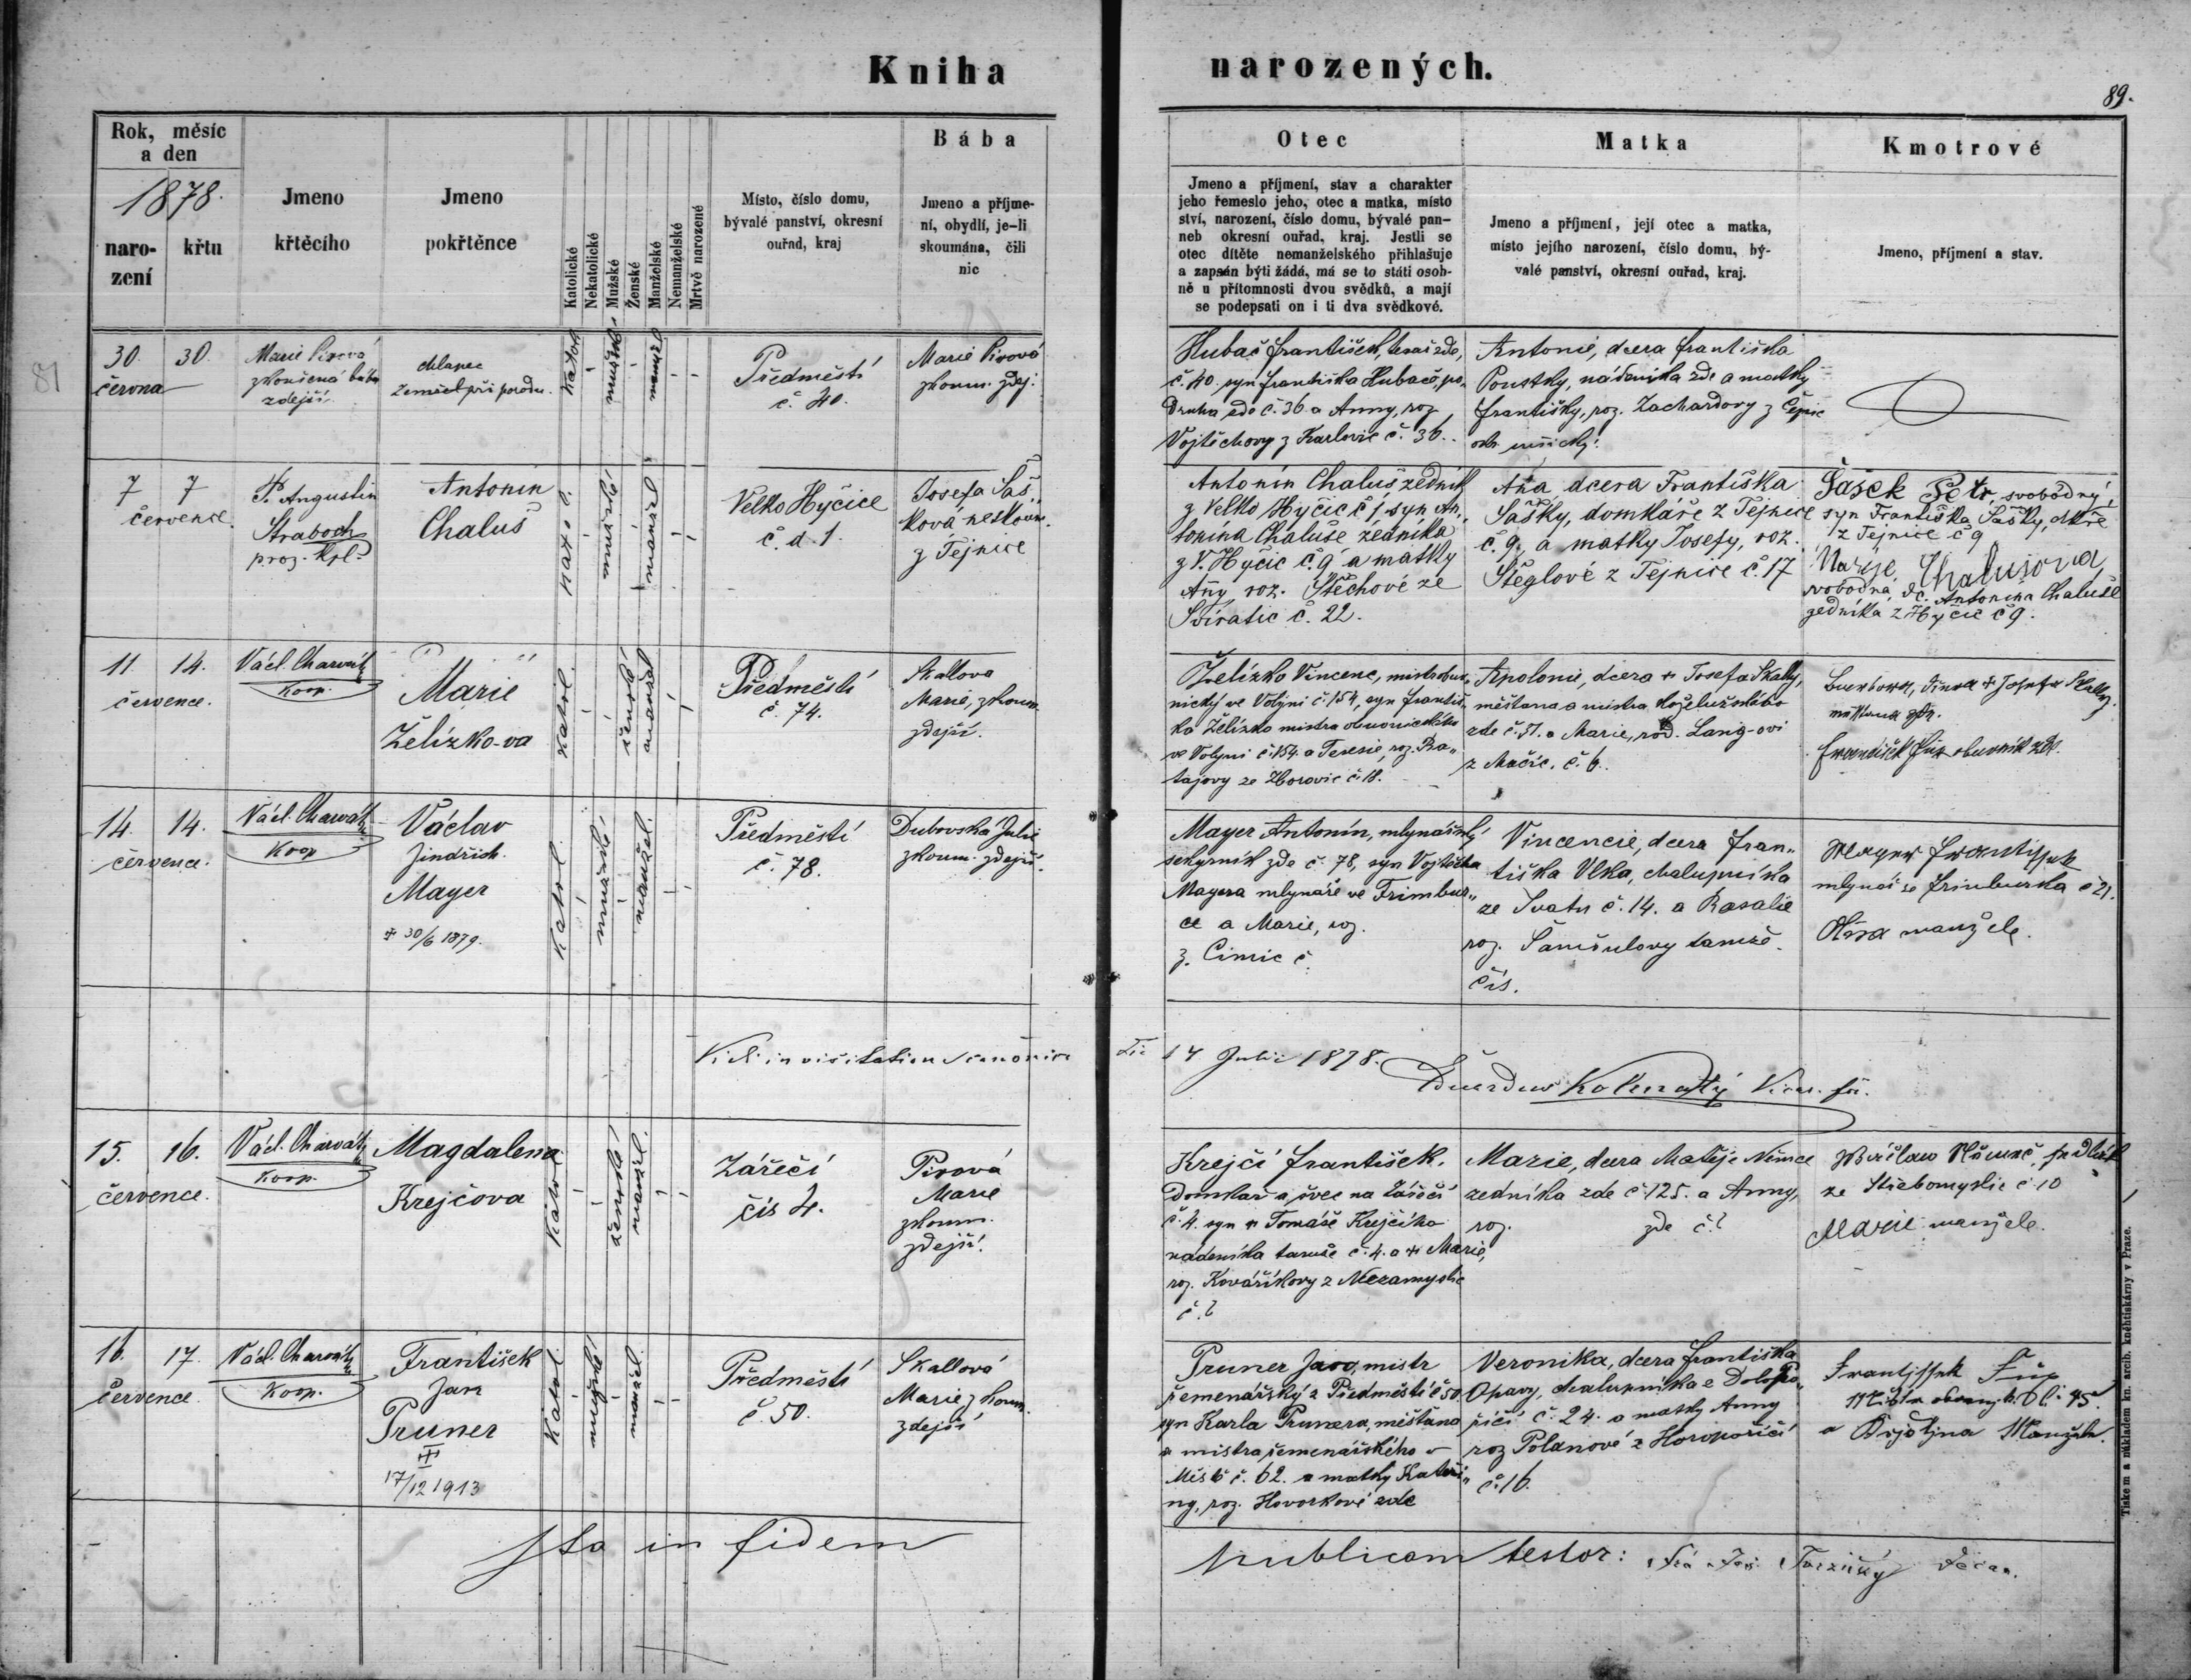 Kniha narozených.
89.
81
Rok, měsíc
a den
1878.
naro-
zení
křtu
Jmeno
křtěcího
Jmeno
pokřtěnce
Katolické
Nekatolické
Mužské
Ženské
Manželské
Nemanželské
Mrtvě narozené
Místo, číslo domu,
bývalé panství, okresní
ouřad, kraj
Bába
Jmeno a příjme-
ní, obydlí, je-li
skoumána, čili
nic
Otec
Jmeno a příjmení, stav a charakter
jeho řemeslo jeho, otec a matka, místo
ství, narození, číslo domu, bývalé pan-
neb okresní ouřad, kraj. Jestli se
otec dítěte nemanželského přihlašuje
a zapsán býti žádá, má se to státi osob-
ně u přítomnosti dvou svědků, a mají
se podepsati on i ti dva svědkové.
Matka
Jmeno a příjmení, její otec a matka,
místo jejího narození, číslo domu, bý-
valé panství, okresní ouřad, kraj.
Kmotrové
Jmeno, příjmení a stav.
30. 30.
června
Marie Pirová
zkoušená bába
zdejší
chlapec
Zemřel při porodu.
Katol.
mužské
Předměstí
č. 40.
Marie Pirová
zkoum. zdej.
Hubač František, zde,
č. 40. syn Františka Hubače,
zde č. 36. a Anny, roz.
Vojtěchovy z Karlovic č. 36.
Antonie, dcera Františka
Poustky, nádeníka zde a matky
Františky, roz. Zachardovy z
7 7
července.
P. Augustin
Straboch
proz. Kpl.
Antonín
Chaluš
Katol.
manžel
Velko Hyčice
č. d. 1.
Josefa Šaš„
ková neskoum.
z Tejnice
Antonín Chaluš, zedník
z Velko Hyčic č 1, syn An„
tonína Chaluše zedníka
z V. Hyčic č. 9 a matky
Añy roz. Štěchové ze
Svíratic č. 22.
Aña dcera Františka
Šašky, domkáře z Tejnice
č. 9. a matky Josefy, roz.
Šteglové z Tejnice č. 17
Šašek Petr, svobodný,
syn Františka Šašky, dkře
z Tejnice č 9
Marje Chalušova
svobodná, dc. Antonína Chaluše
zedníka z Hyčic č 9.
11. 14.
července.
Václ. Charvát
Koop.
Marie
Želízko-va
Katol.
ženské
manžel
Předměstí
č. 74.
Skallova
Marie, zkoum.
zdejší.
Želízko Vincenc, mistr obuv„
nický ve Volyni č. 154, syn Františ„
ka Želízko mistra obuvnického
ve Volyni č. 154. a Terezie, roz. Ra„
tajovy ze Zborovic č. 18.
Apolonie, dcera + Josefa Skally,
měšťana a mistra koželužského
zde č. 51. a Marie, rod. Lang-ovi
z Mačic. č. 6.
Barbora, + Josefa Skally
František obuvník zde.
14. 14.
července.
Václ. Charvát
Koop
Václav
Jindřich.
Mayer
+ 30/6 1879.
Katol.
mužské
manžel.
Předměstí
č. 78.
Dubovská Julie
zkoum. zdejší.
Mayer Antonín, mlynářský
sekyrník zde č. 78, syn Vojtěcha
Mayera mlynáře ve Frimbur„
ce a Marie, roz.
z. Cimic č.
Vincencie, dcera Fran„
tiška Vlka, chalupníka
ze Svatu č. 14. a Rosalie
roz. Šamšulovy tamže.
čís.
Mayer Frantissek
mlynář ze Frimburka č 21.
manzele.
Vidi in visitatione canonica
Die 14 Julii 1878.
Eduardus Kolenatý Vicar. for.
15. 16.
července.
Václ. Charvát
Koop.
Magdalena
Krejčova
Katol
ženské
manžel.
Zářečí
čís 4.
Pirová
Marie
zkoum.
zdejší.
Krejčí František.
Domkář a švec na Zářečí
č. 4. syn + Tomáše Krejčího
nádeníka tamže č. 4. a + Marie,
roz. Kováříkovy z Nezamyslic
č.?
Marie, dcera Matěje Němce
zedníka zde č. 125. a Anny,
roz. zde č.?
sedlák
ze Střebomyslic č 10
Marie manzele.
16. 17.
července
Václ. Charvát
Koop.
František
Jan
Pruner
+
17/12 1913
Katol.
mužské
manžel.
Předměstí
č. 50.
Skallová
Marie zkoum.
zdejší
Pruner Jan, mistr
řemenářský z Předměstí č 50.
syn Karla Prunera, měšťana
a mistra řemenářského v
Městě č. 62. a matky Kateři„
ny, roz. Hovorkové zde
Veronika, dcera Františka
Opavy, chalupníka z Dolopo„
řičí č. 24. a matky Anny
roz Polanové z Horopořičí
č. 16.
Frantissek Füx
č. 45.
a Manzele.
Ita in fidem publicam testor: Děkan.
Tiskem a nákladem kn. arcib. kněhtiskárny v Praze.